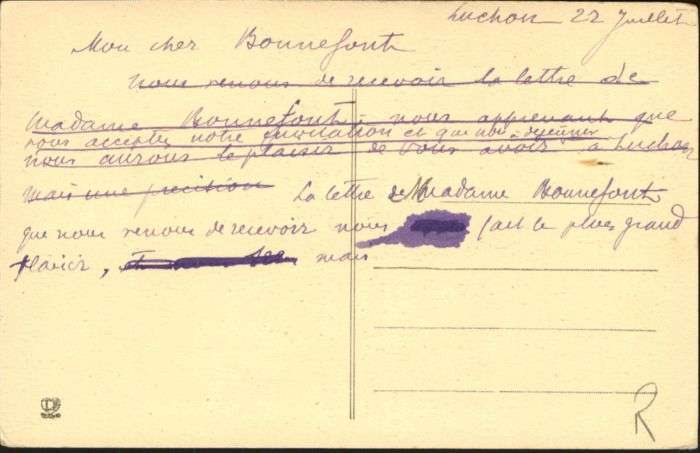 Luchon 22 Juillet
Mon cher Bonnefont
nous venons de recevoir la lettre de
Madame Bonnefont, nous apprenant que
vous acceptez notre invitation et que à déjeuner
nous aurons le plaisir de vous avoir à Luchon
mais une précision La lettre de Madame Bonnefont
que nous venons de recevoir nous fait le plus grand
plaisir, mais
R